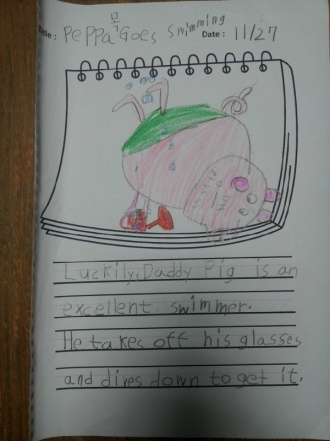 Title : PePPa Goes swimming Date : 11/27
Luckily, Daddy Pig is an
excellent swimmer.
He takes off his glasses
and dives down to get it.